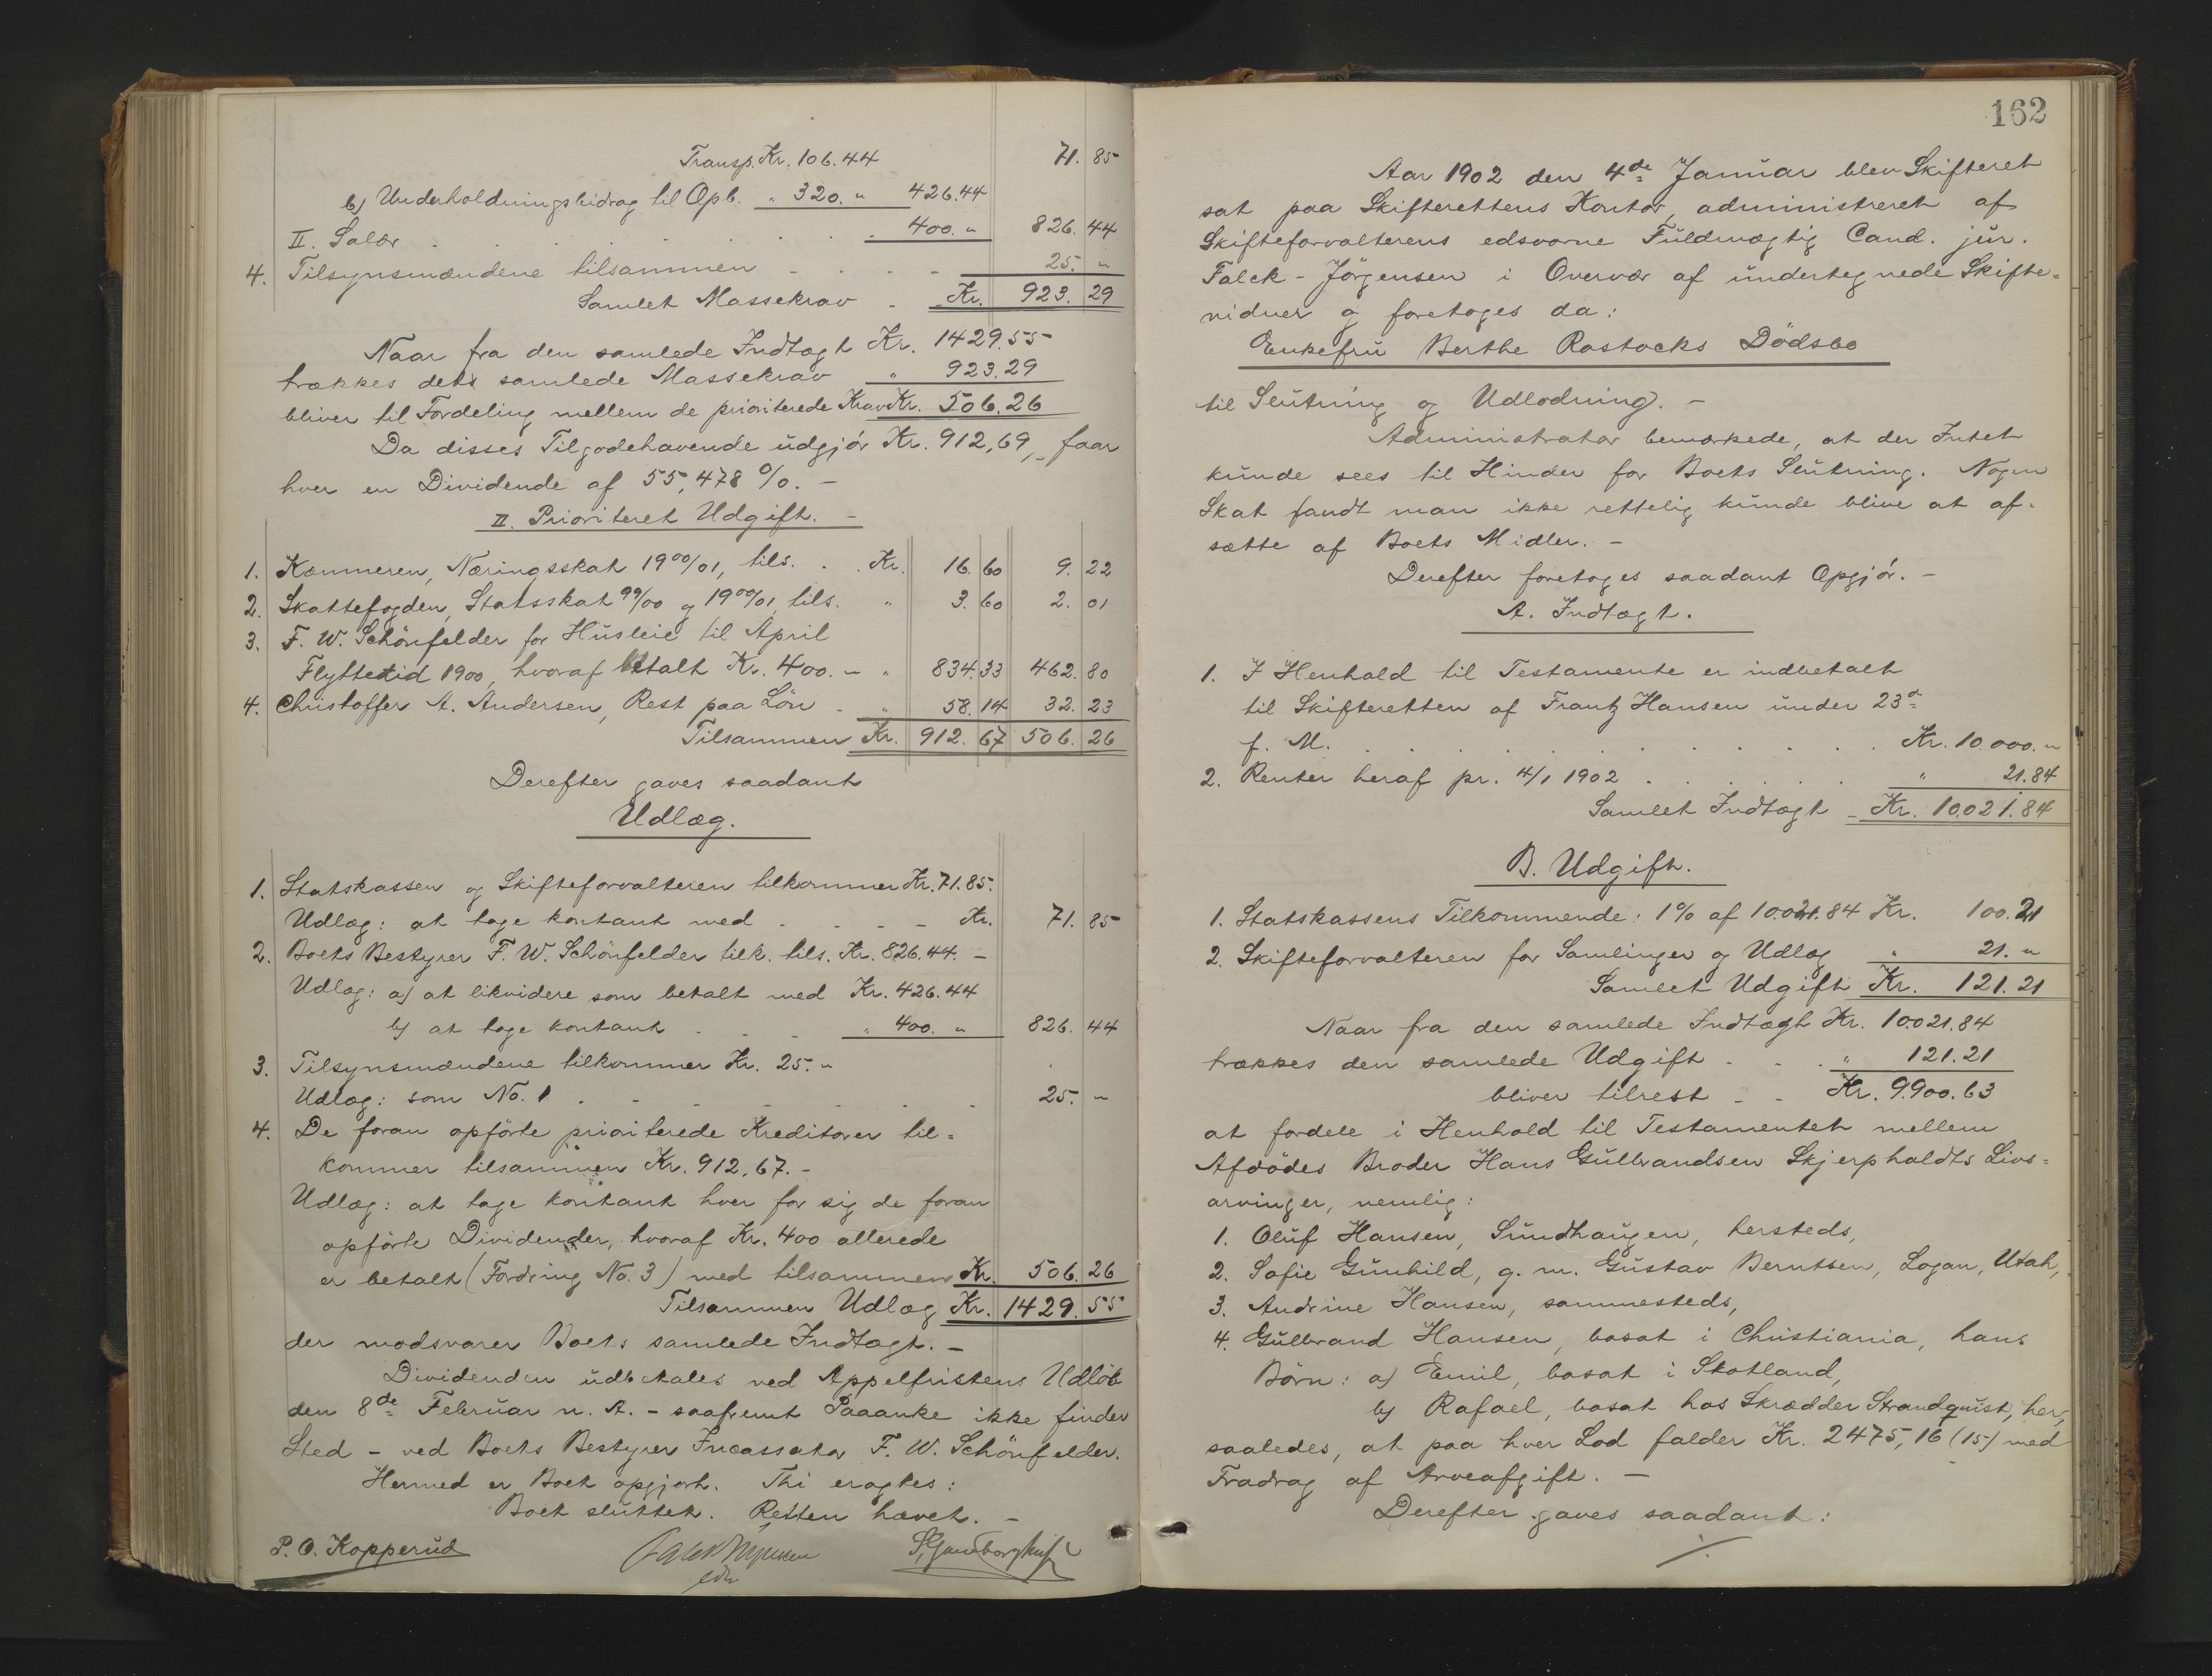 Transp. Kr. 106.44 71. 85
b) Underholdningsbidrag til Opb. " 320. " 426.44
II. Salær . . . . . . . . 400. " 826. 44
4. Tilsynsmændene tilsammen - - - - 25. "
Samlet Massekrav - Kr. 923. 29
Naar fra den samlede Indtægt Kr. 1429.55
trækkes dets samlede Massekrav " 923.29
bliver til Fordeling mellem de prioriterede Krav Kr. 506.26
Da disses Tilgodehavende udgjør Kr. 912,69,- faar
hver en Dividende af 55,478 %. -
II. Prioriteret Udgift. -
1. Kæmneren, Næringsskat 1900/01, tils. . . Kr. 16. 60 9. 22
2. Skattefogden, Statsskat 99/00 og 1900/01, tils. " 3. 60 2. 01
3. F. W. Schönfelder for Husleie til April
Flyttetid 1900, hvoraf betalt Kr. 400. - " 834. 33 462. 80
4. Christoffer A. Andersen, Rest paa Løn - " 58. 14 32. 23
Tilsammen Kr. 912. 67 506. 26
Derefter gaves saadant
Udlæg.
1. Statskassen og Skifteforvalteren tilkommer Kr. 71.85.
Udlæg: at tage kontant med - - - - Kr. 71. 85
2. Boets Bestyrer F. W. Schönfelder tilk. tils. Kr. 826.44. -
Udlæg: a) at likvidere som betalt med Kr. 426.44
b) at tage kontant . . . " 400. " 826. 44
3. Tilsynsmændene tilkommer Kr. 25. "
Udlæg: som No. 1 . - - - - - - - 25. "
4. De foran opførte prioriterede Kreditorer til=
kommer tilsammen Kr. 912,67. -
Udlæg: at tage kontant hver for sig de foran
opførte Dividender, hvoraf Kr. 400 allerede
er betalt (Fordring No. 3) med tilsammen Kr. 506. 26
Tilsammen Udlæg Kr. 1429. 55
der modsvarer Boets samlede Indtægt. -
Dividenden udbetales ved Appelfristens Udløb
den 8de Februar n. A. - saafremt Paaanke ikke finder
Sted - ved Boets Bestyrer Incassator F. W. Schönfelder.
Hermed er Boet opgjort. Thi eragtes:
Boet sluttet. Retten hævet. -
P. O. Kopperud
162
Aar 1902 den 4de Januar blev Skifteret
sat paa Skifterettens Kontor, administreret af
Skifteforvalterens edsvorne Fuldmægtig Cand. jur.
Falck-Jørgensen i Overvær af undertegnede Skifte=
vidner og foretoges da:
Enkefru Berthe Rostocks Dödsbo
til Slutning og Udlodning. -
Administrator bemærkede, at der Intet
kunde sees til Hinder for Boets Slutning. Nogen
Skat fandt man ikke rettelig kunde blive at af-
sætte af Boets Midler. -
Derefter foretoges saadant Opgjør. -
A. Indtægt.
1. I Henhold til Testamente er indbetalt
til Skifteretten af Frantz Hansen under 23d
f. M. . . . . . . . . . . . Kr. 10.000. "
2. Renter heraf pr. 4/1 1902 . . . . . . " 21.84
Samlet Indtægt - Kr. 10.021.84
B. Udgift.
1. Statskassens Tilkommende: 1% af 10.021.84 Kr. 100.21
2. Skifteforvalteren for Samlinger og Udlæg " 21. "
Samlet Udgift Kr. 121.21
Naar fra den samlede Indtægt Kr. 10.021.84
trækkes den samlede Udgift - - . " 121.21
bliver tilrest - - Kr. 9.900.63
at fordele i Henhold til Testamentet mellem
Afdødes Broder Hans Gulbrandsen Skjerpholdts Livs=
arvinger, nemlig:
1. Oluf Hansen, Sundhaugen, hersteds,
2. Sofie Gunhild, g. m. Gustav Berntsen, Logan, Utah,
3. Andrine Hansen, sammesteds,
4. Gulbrand Hansen, bosat i Christiania, hans
Børn: a) Emil, bosat i Skotland,
b) Rafael, bosat hos Skrædder Strandquist, her,
saaledes, at paa hver Lod falder Kr. 2475,16 (15) med
Fradrag af Arveafgift. -
Derefter gaves saadant:
./.